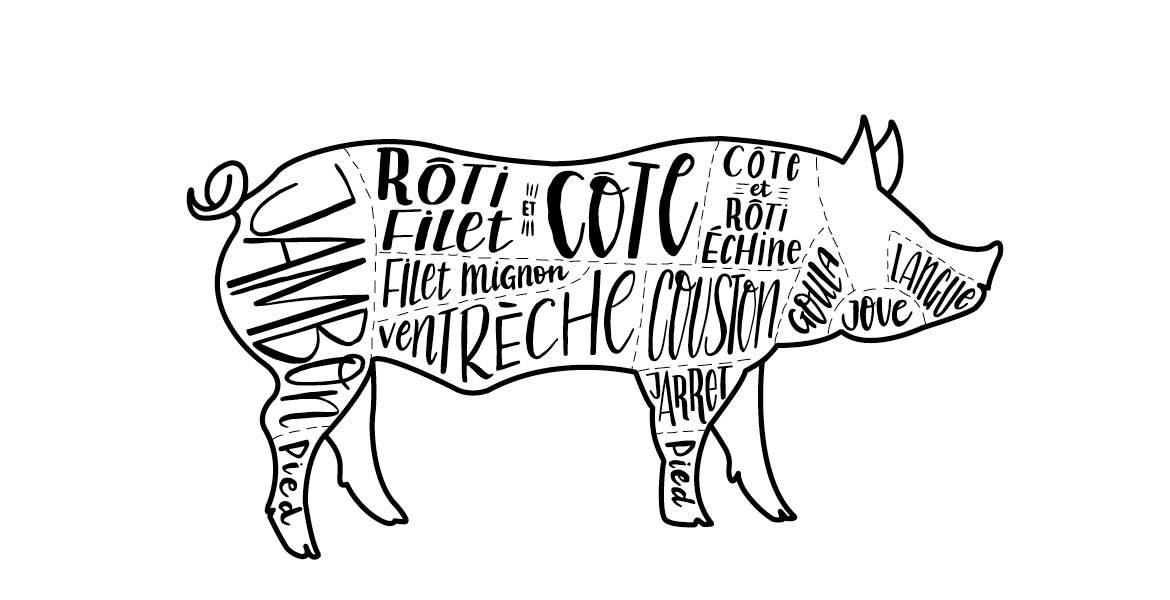 JAMBON
RÔTI
FILET
ET
CÔTE
CÔTE
et
RÔTI
ÉCHINE
FILET MIGNON
VENTRÈCHE
COUSTON
GOULA
JOUE
LANGUE
JARRET
Pied
Pied